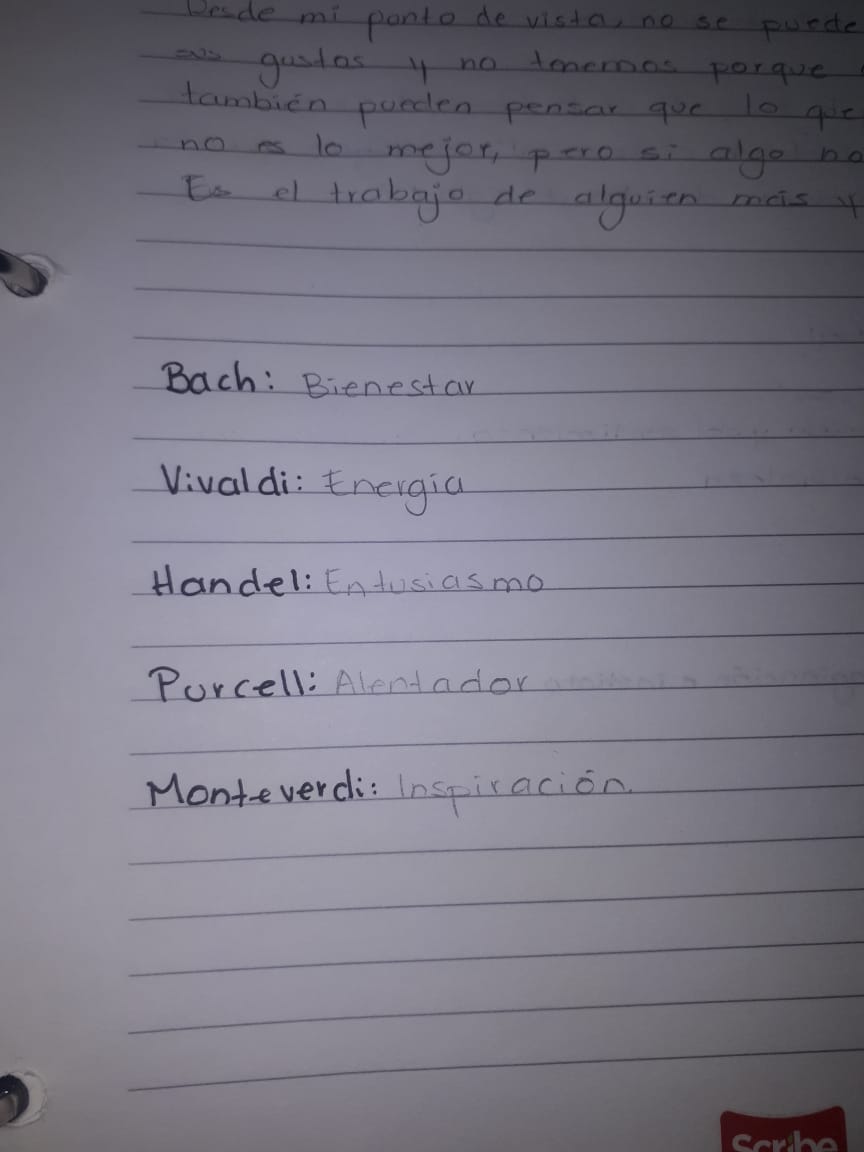 Desde mi ponto de vista, no se puede
sus gustos y no tenemos porque
también pueden pensar que lo que
no es lo mejor, pero si algo no
Es el trabajo de alguien más y
Bach: Bienestar
Vivaldi: Energía
Handel: Entusiasmo
Purcell: Alentador
Monteverdi: Inspiración.
Scribe